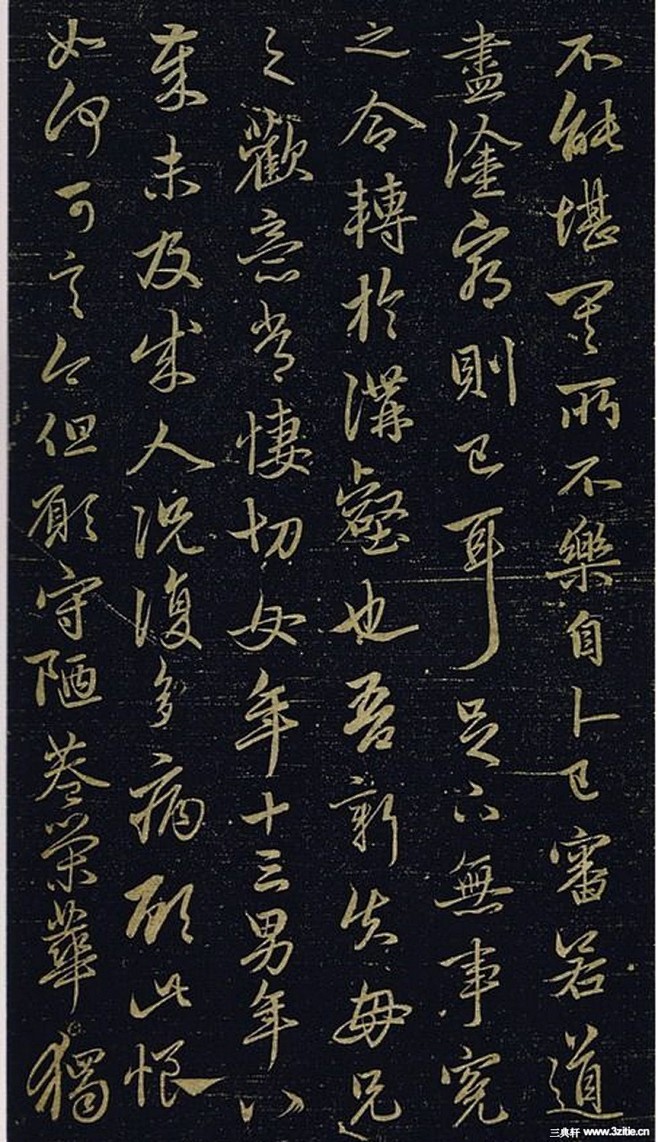 不能堪其所不樂自卜已審若道
盡塗窮則已耳足下無事冤
之令轉於溝壑也吾新失母兄
之歡意常悽切女年十三男年八
歲未及成人況復多病顧此悢
如何可言今但願守陋巷榮華獨
三典轩 www.3zitie.cn